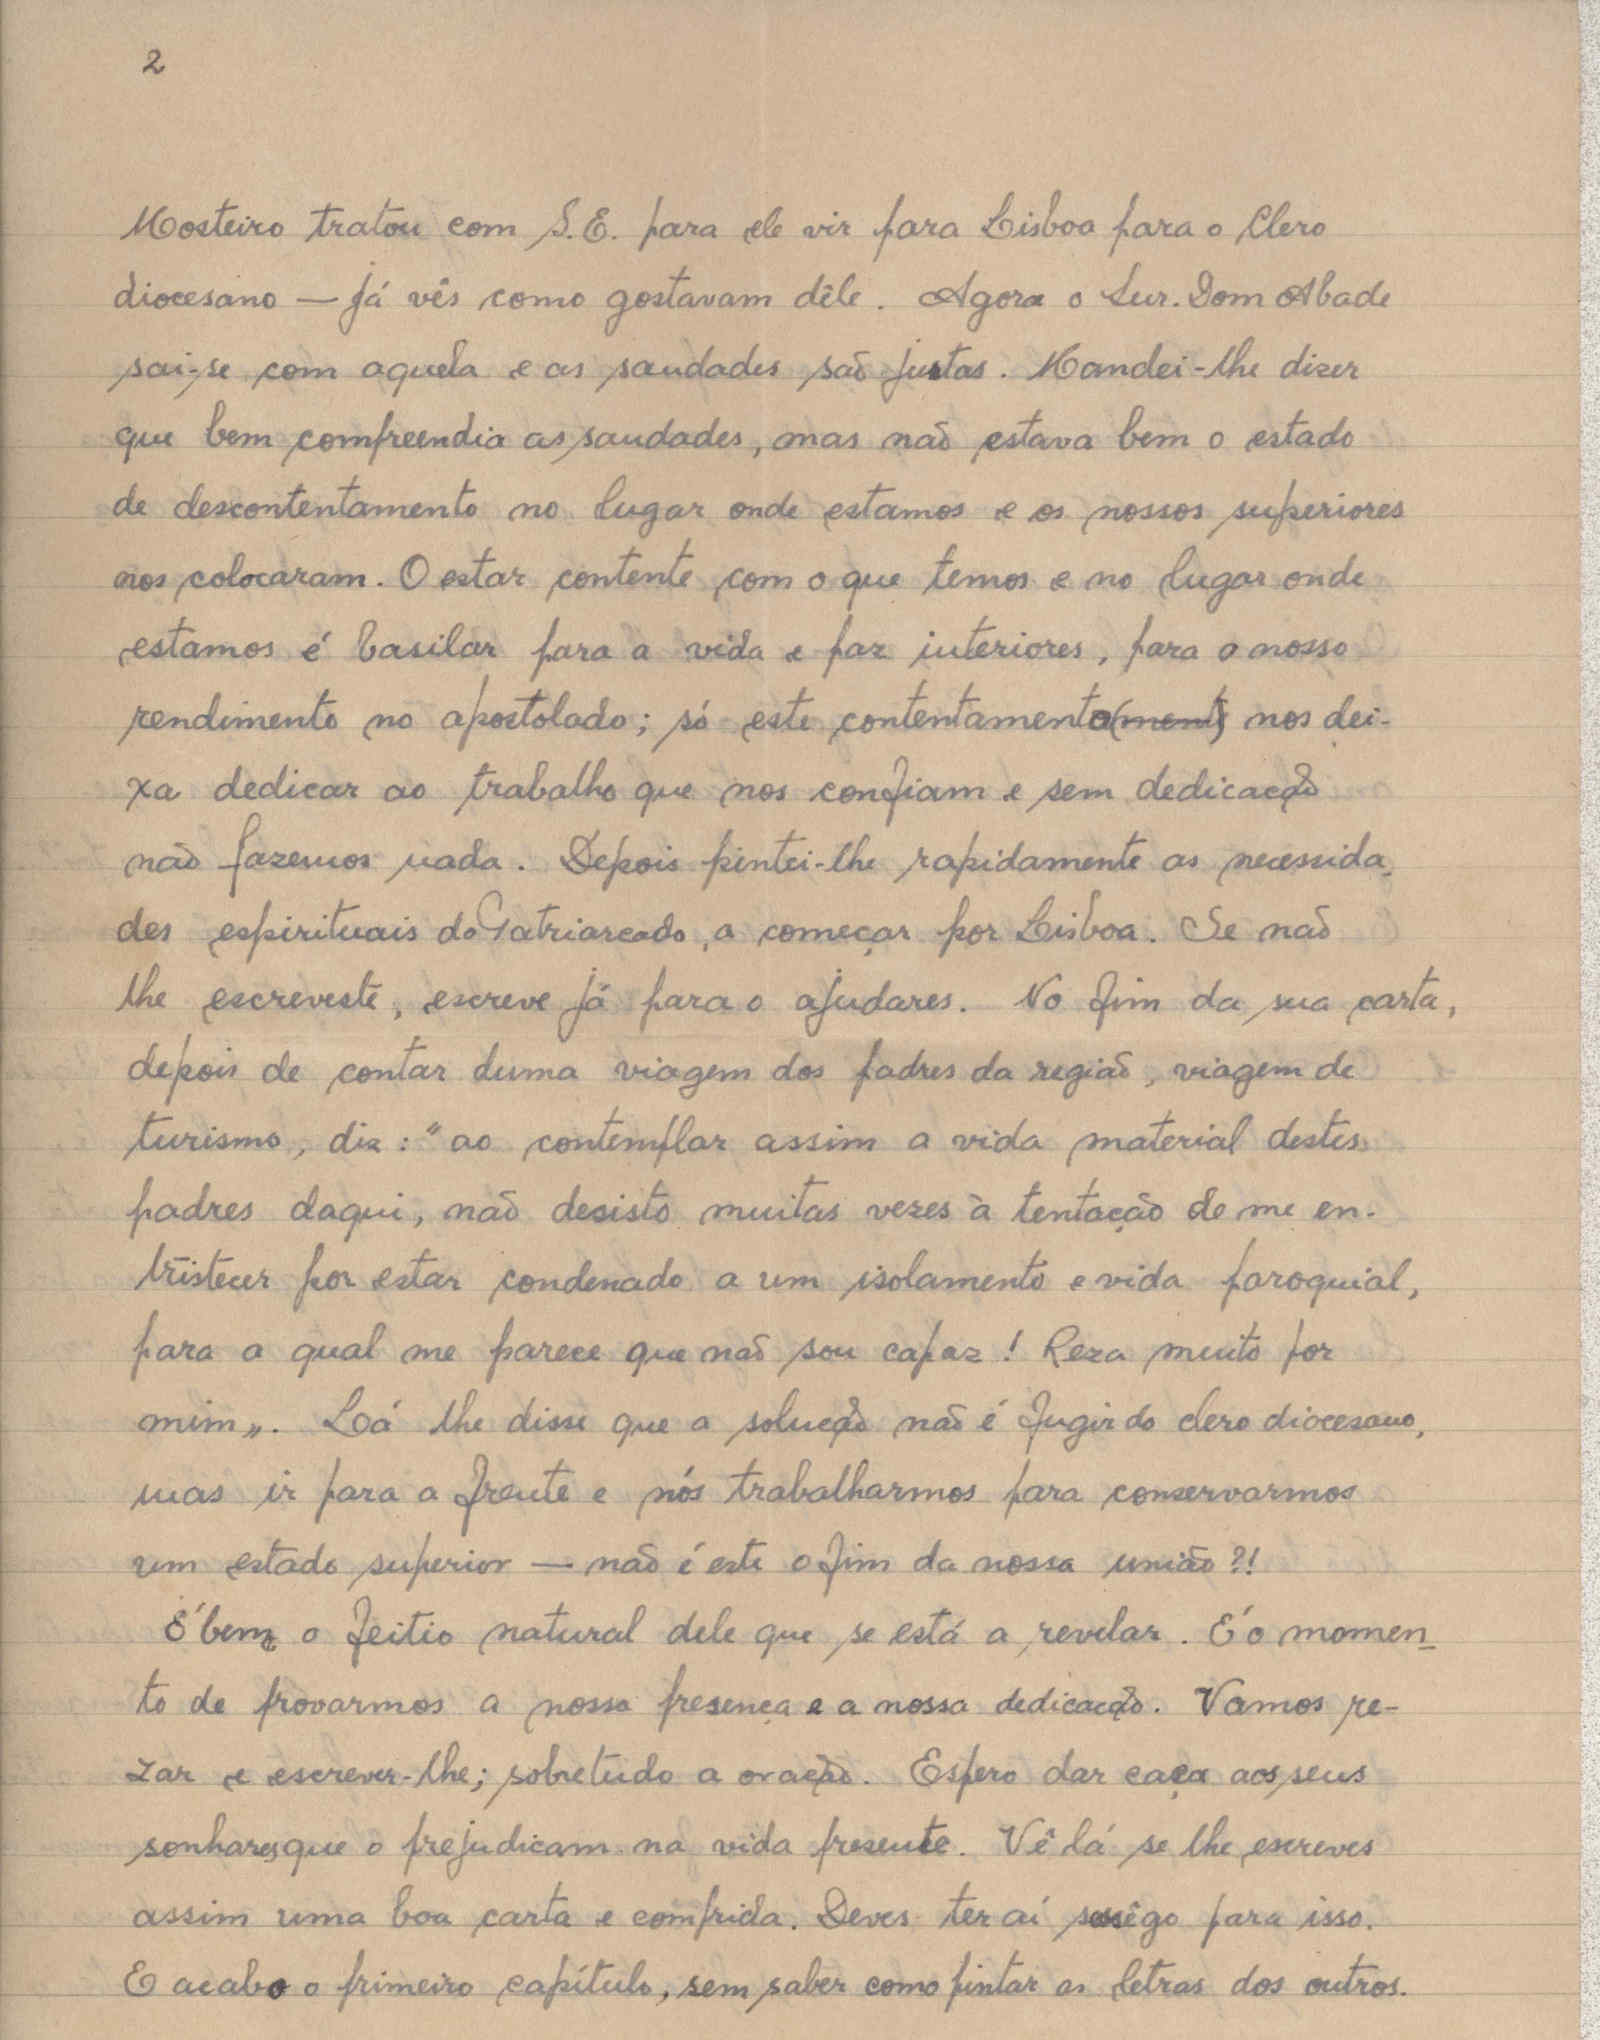 2
Mosteiro tratou com S.E. para ele vir para Lisboa para o Clero
diocesano — já vês como gostavam dêle. Agora o Snr. Dom Abade
sai-se com aquela e as saudades são justas. Mandei-lhe dizer
que bem compreendia as saudades, mas não estava bem o estado
de descontentamento no lugar onde estamos e os nossos superiores
nos colocaram. O estar contente com o que temos e no lugar onde
estamos é basilar para a vida e paz interiores, para o nosso
rendimento no apostolado; só este contentamento(ment) nos dei-
xa dedicar ao trabalho que nos confiam e sem dedicação
não fazemos nada. Depois pintei-lhe rapidamente as necessida-
des espirituais do Patriarcado, a começar por Lisboa. Se não
lhe escreveste, escreve já para o ajudares. No fim da sua carta,
depois de contar duma viagem dos padres da região, viagem de
turismo, diz: "ao contemplar assim a vida material destes
padres daqui, não desisto muitas vezes à tentação de me en-
tristecer por estar condenado a um isolamento e vida paroquial,
para a qual me parece que não sou capaz! Reza muito por
mim". Lá lhe disse que a solução não é fugir do clero diocesano,
mas ir para a frente e nós trabalharmos para conservarmos
um estado superior — não é este o fim da nossa união?!
É bem o feitio natural dele que se está a revelar. É o momen-
to de provarmos a nossa presença e a nossa dedicação. Vamos re-
zar e escrever-lhe; sobretudo a oração. Espero dar caça aos seus
sonhares que o prejudicam na vida presente. Vê lá se lhe escreves
assim uma boa carta e comprida. Deves ter aí sossêgo para isso.
E acabo o primeiro capítulo, sem saber como pintar as letras dos outros.